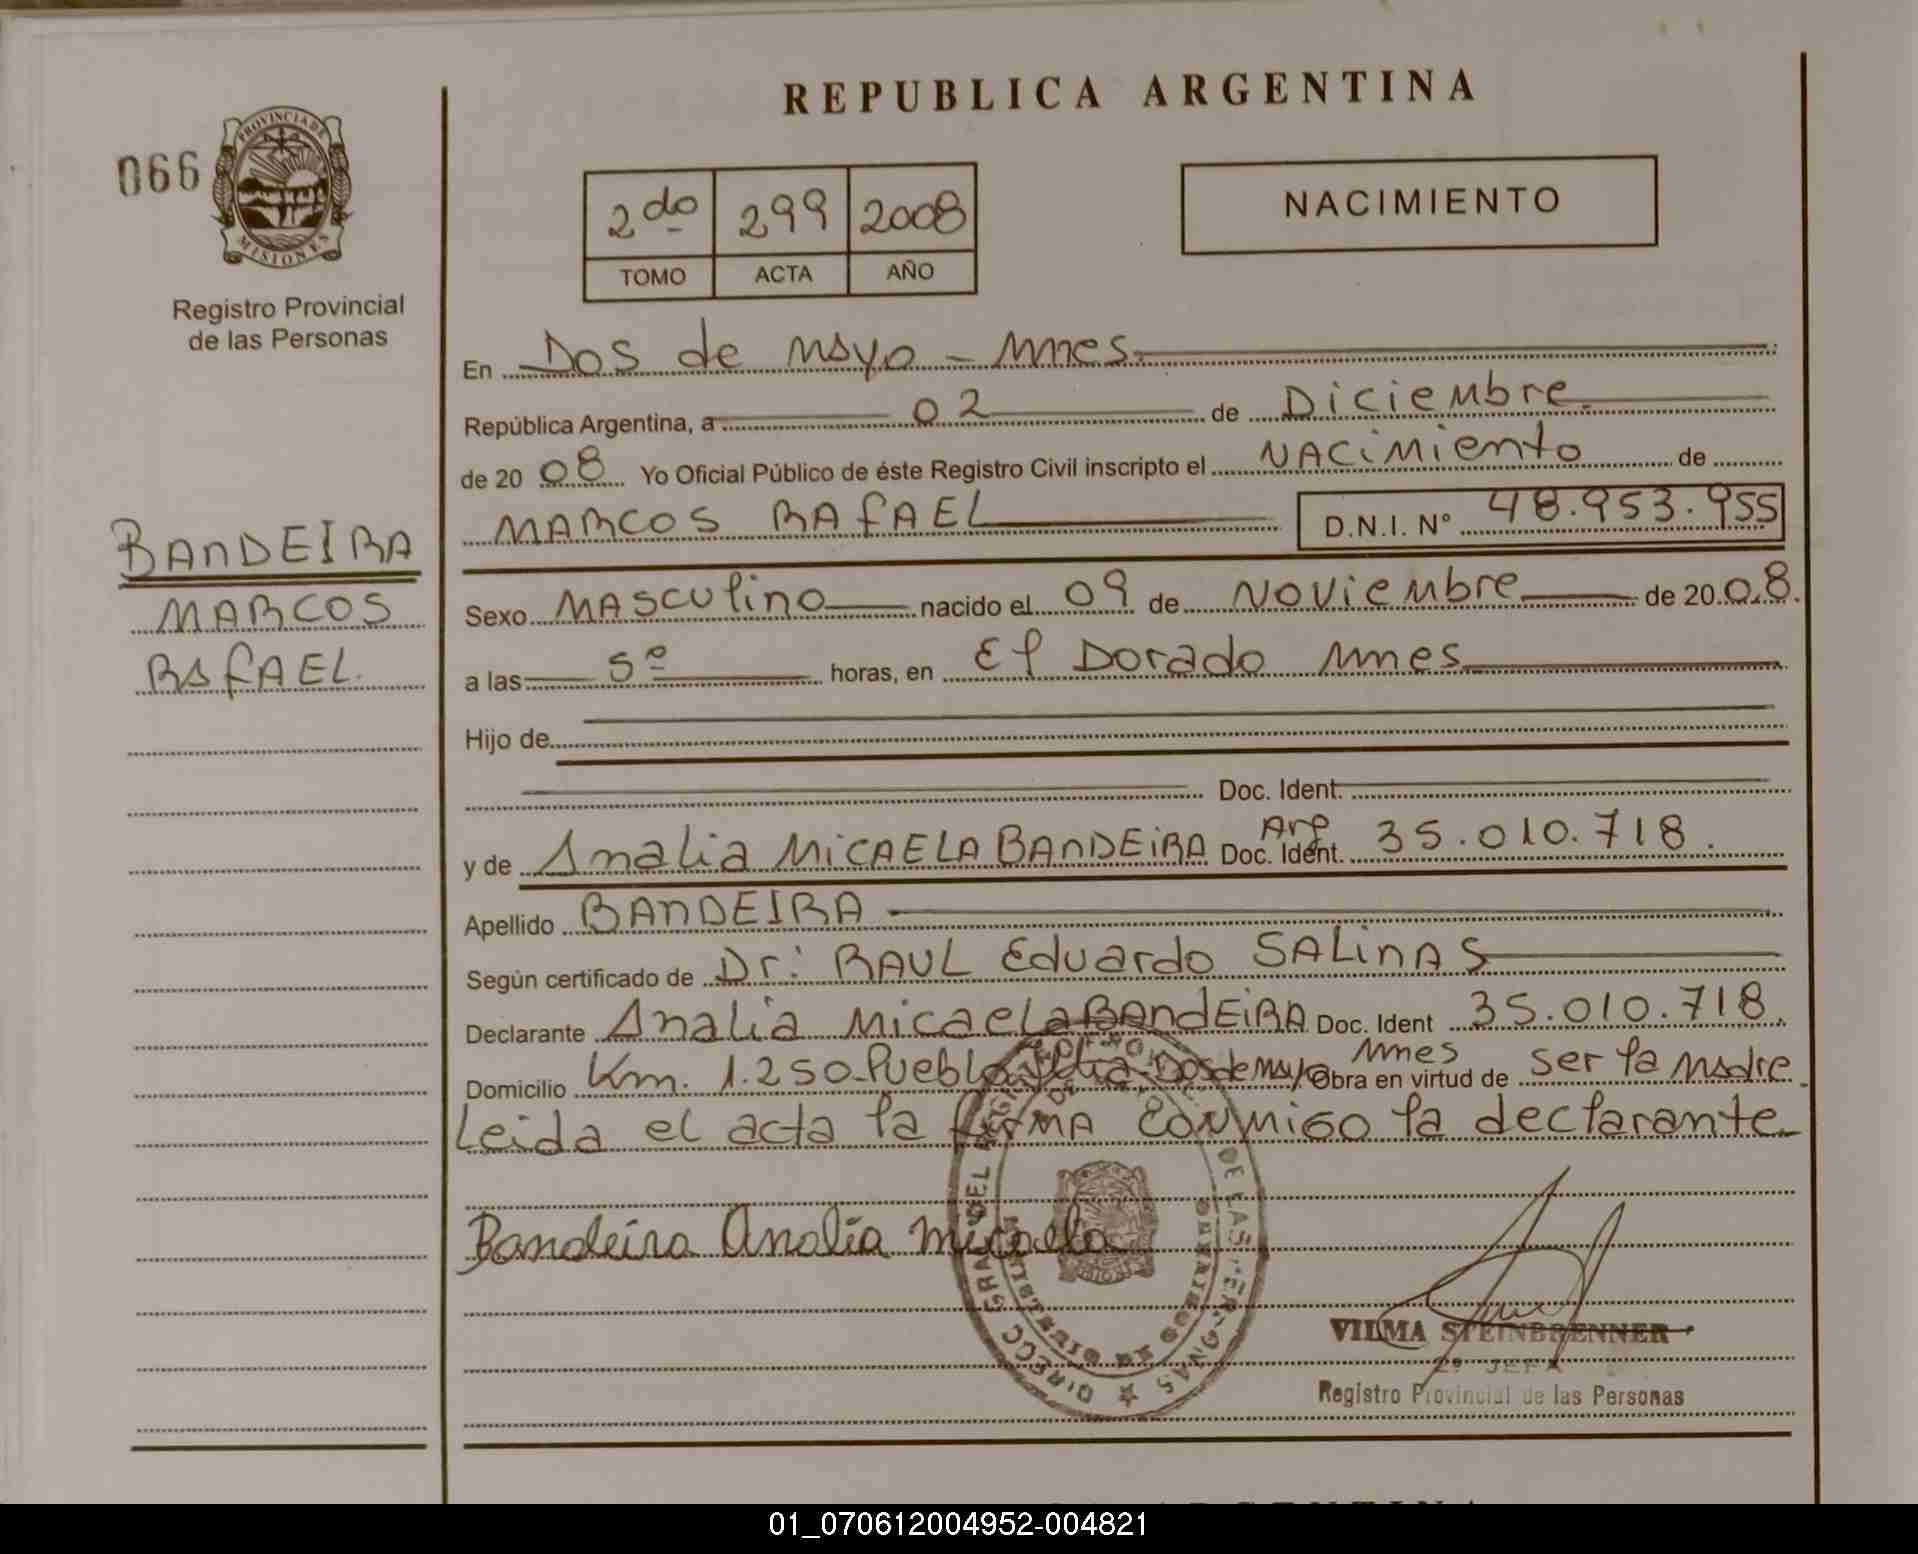 REPUBLICA ARGENTINA
066
PROVINCIA DE
MISIONES
Registro Provincial
de las Personas
2do 299 2008
TOMO ACTA AÑO
NACIMIENTO
BANDEIRA
MARCOS
RAFAEL.
En Dos de Mayo - Mnes.
República Argentina, a 02 de Diciembre.
de 2008 Yo Oficial Público de éste Registro Civil inscripto el NACIMIENTO de
MARCOS RAFAEL D.N.I. N° 48.953.955
Sexo MASCULINO nacido el 09 de NOVIEMBRE de 2008.
a las 5º horas, en El Dorado Mnes
Hijo de
Doc. Ident.
y de Analia MICAELA BANDEIRA Arg Doc. Ident. 35.010.718.
Apellido BANDEIRA
Según certificado de Dr: RAUL Eduardo SALINAS
Declarante Analia Micaela BANDEIRA Doc. Ident 35.010.718.
Domicilio Km. 1.250-Pueblo Dos de Mayo Mnes Obra en virtud de ser la madre.
Leida el acta la firma conmigo la declarante
Bandeira Analia Micaela
DIRECC GRAL DEL DE LAS PERSONAS
VILMA STEINBRENNER
2º JEFA
Registro Provincial de las Personas
01_070612004952-004821